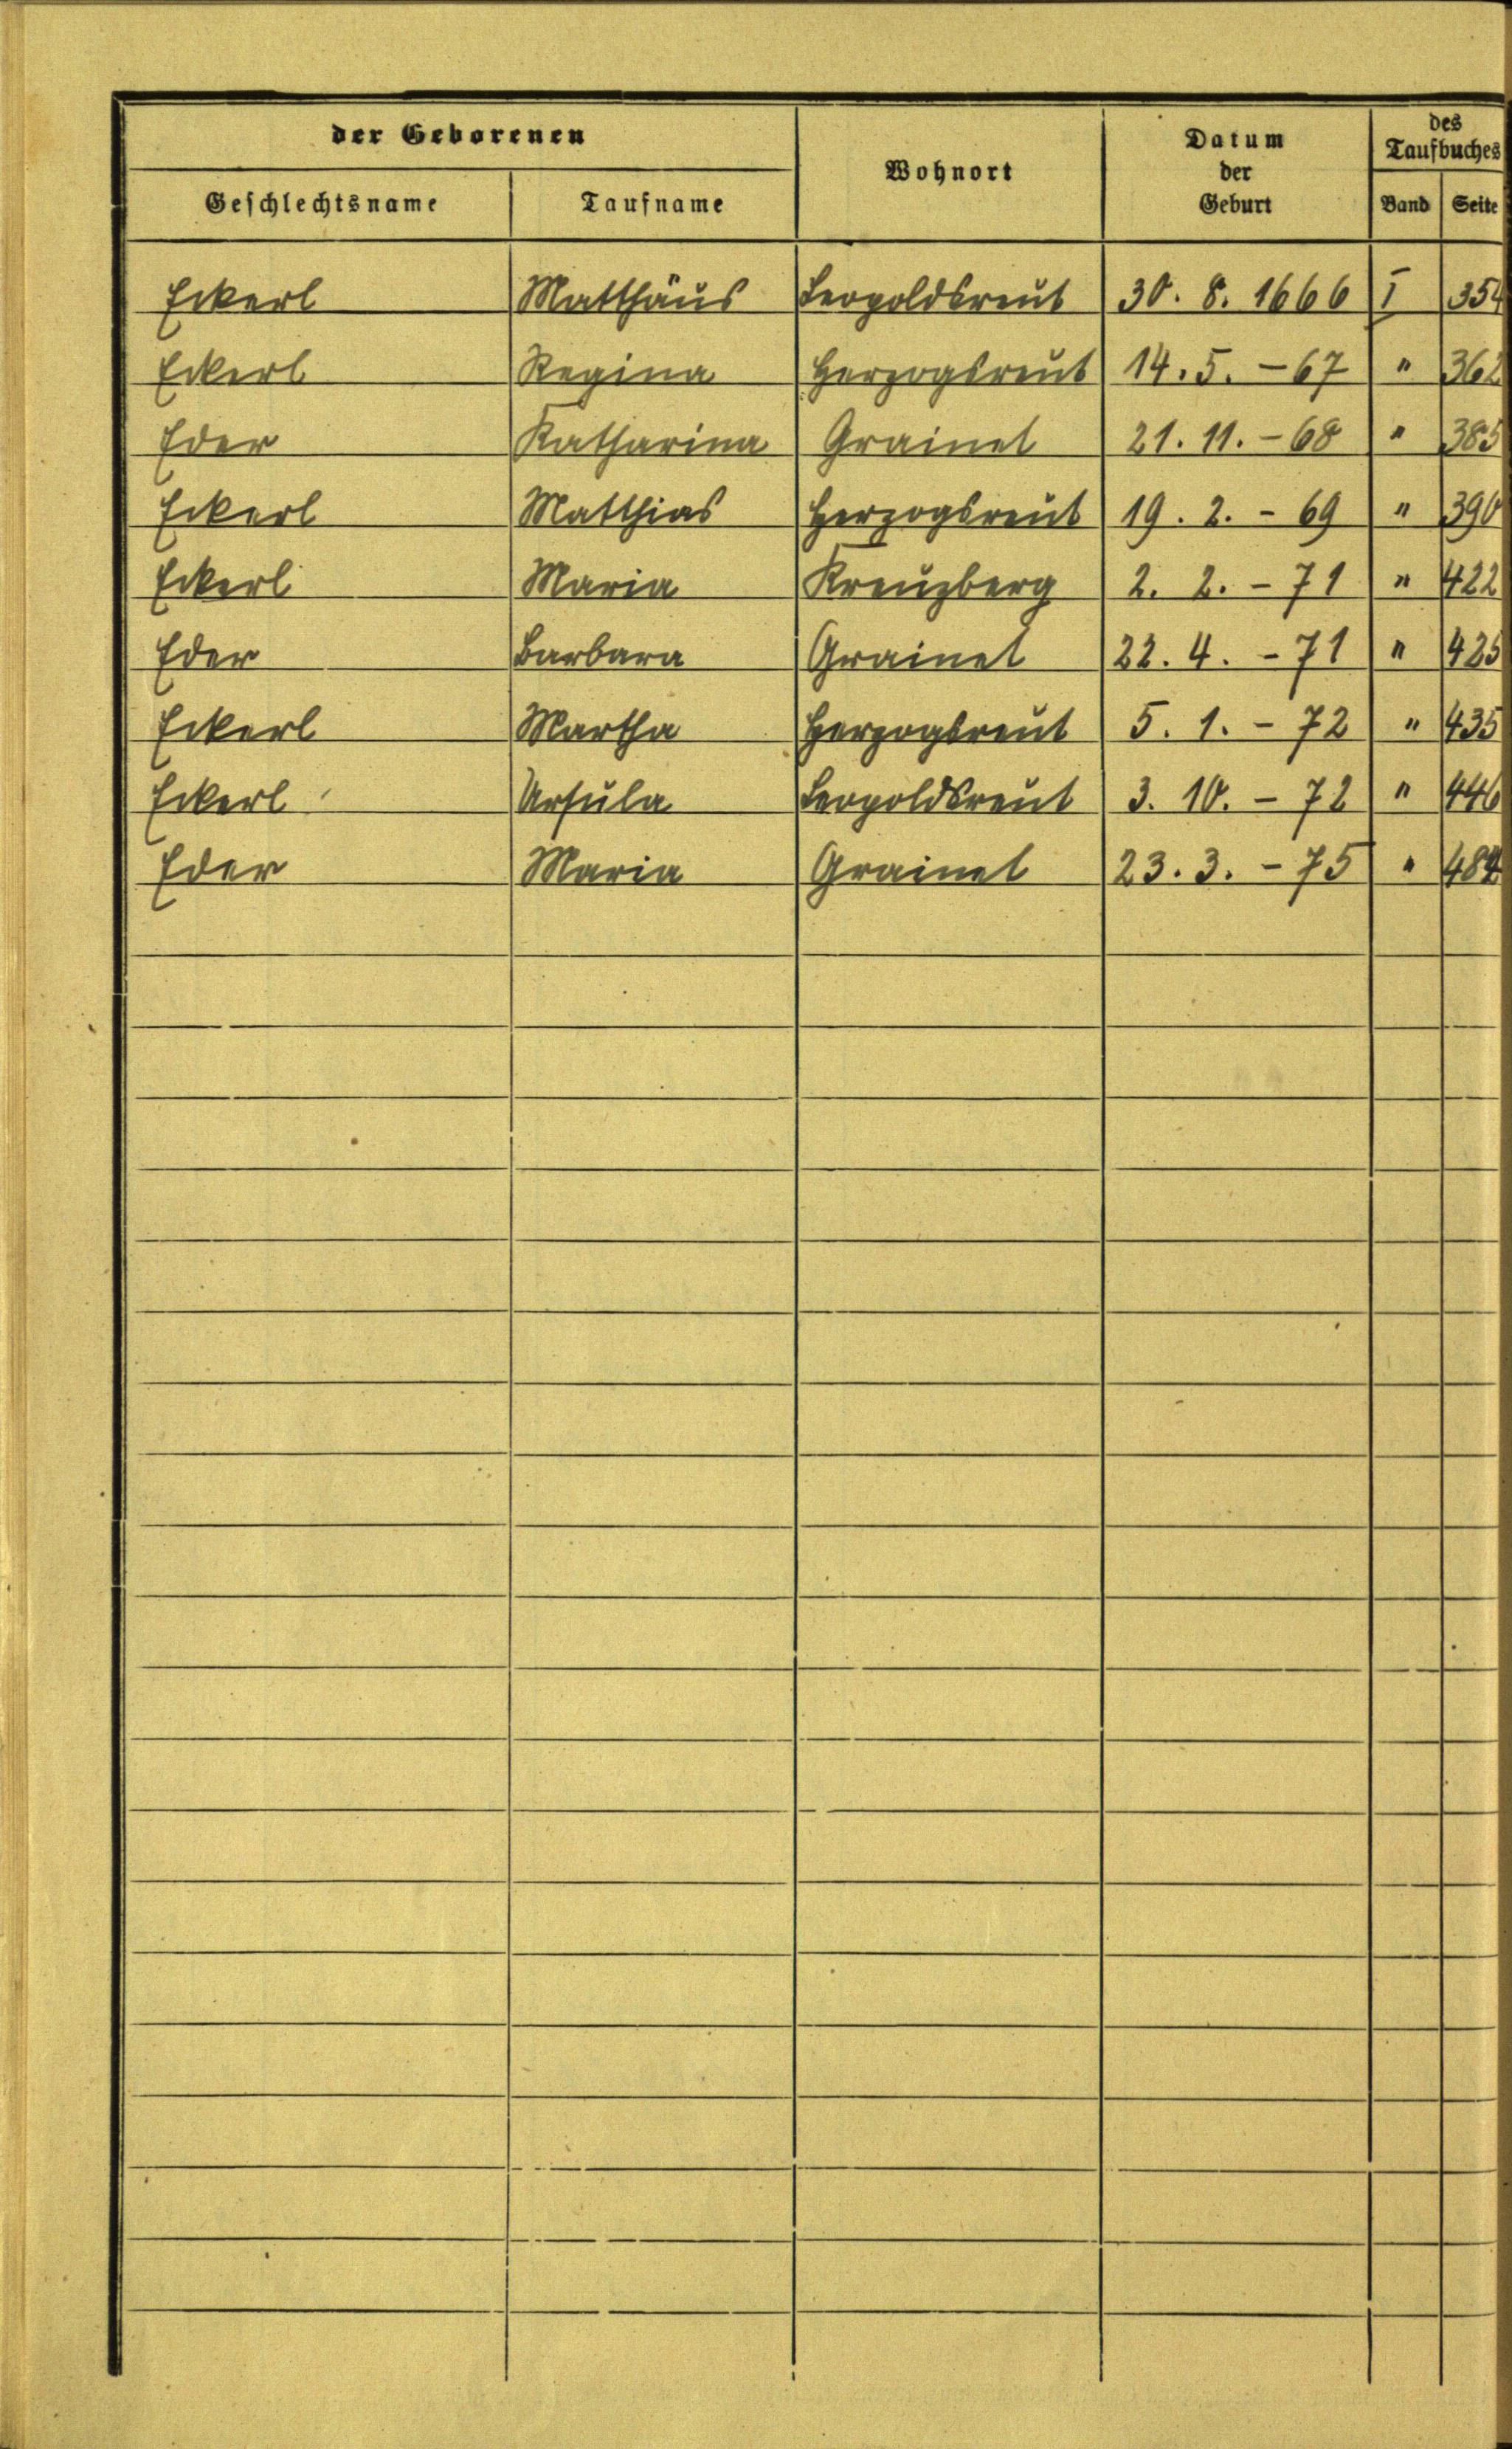 der Geborenen Wohnort Datum der Geburt des Taufbuches
Geschlechtsname Taufname Band Seite
Eckerl Matthäus Leopoldsreut 30. 8. 1666 I 354
Eckerl Regina Herzogsreut 14. 5. - 67 " 362
Eder Katharina Grainet 21. 11. - 68 " 385
Eckerl Matthias Herzogsreut 19. 2. - 69 " 390
Eckerl Maria Kreuzberg 2. 2. - 71 " 422
Eder Barbara Grainet 22. 4. - 71 " 425
Eckerl Martha Herzogsreut 5. 1. - 72 " 435
Eckerl Ursula Leopoldsreut 3. 10. - 72 " 446
Eder Maria Grainet 23. 3. - 75 "